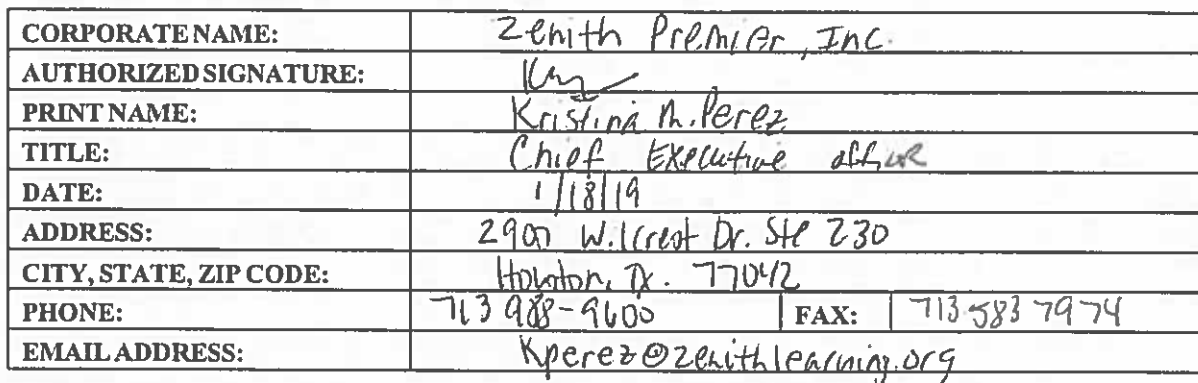 CORPORATE NAME: Zenith Premier, Inc.
AUTHORIZED SIGNATURE:
PRINT NAME: Kristina M. Perez
TITLE: Chief Executive Officer
DATE: 1/18/19
ADDRESS: 2900 Wilcrest Dr. Ste 230
CITY, STATE, ZIP CODE: Houston, TX. 77042
PHONE: 713 988-9600 FAX: 713 583 7974
EMAIL ADDRESS: Kperez@zenithlearning.org